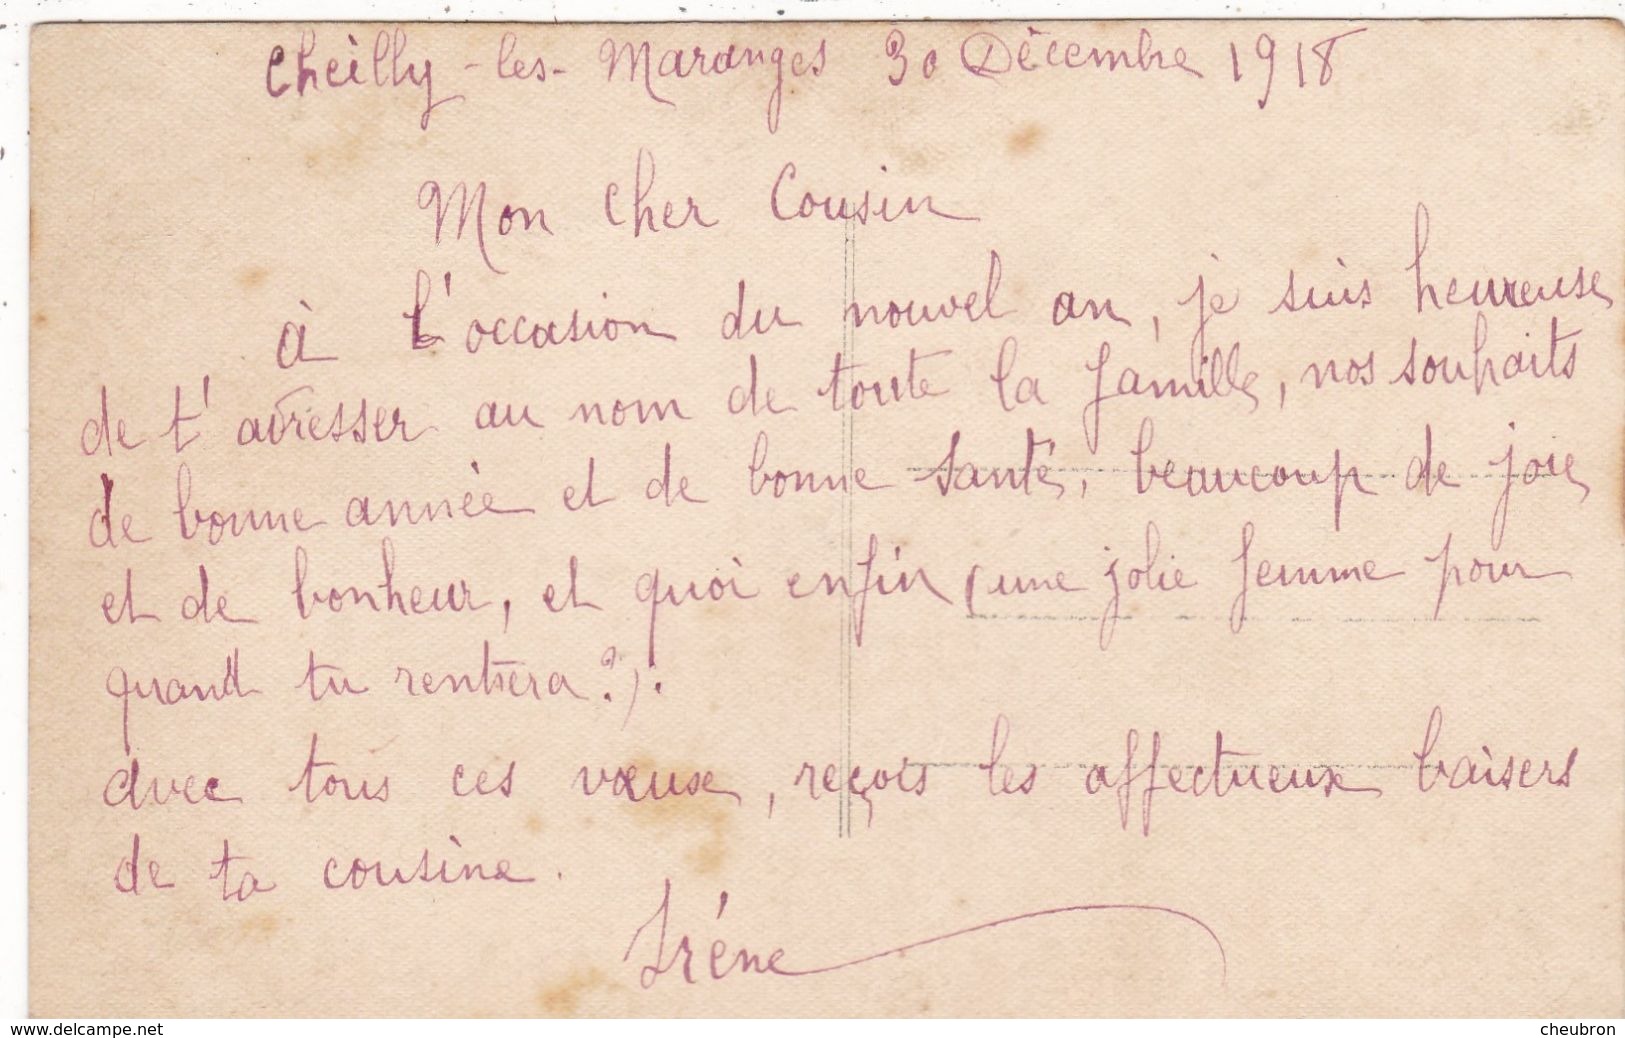 Cheilly-les-Maranges 30 Décembre 1918
Mon cher Cousin
à l'occasion du nouvel an, je suis heureuse
de t'adresser au nom de toute la famille, nos souhaits
de bonne année et de bonne santé, beaucoup de joie
et de bonheur, et quoi enfin (une jolie femme pour
quand tu rentrera?).
avec tous ces vœuse, reçois les affectueux baisers
de ta cousine.
Iréne
www.delcampe.net
cheubron